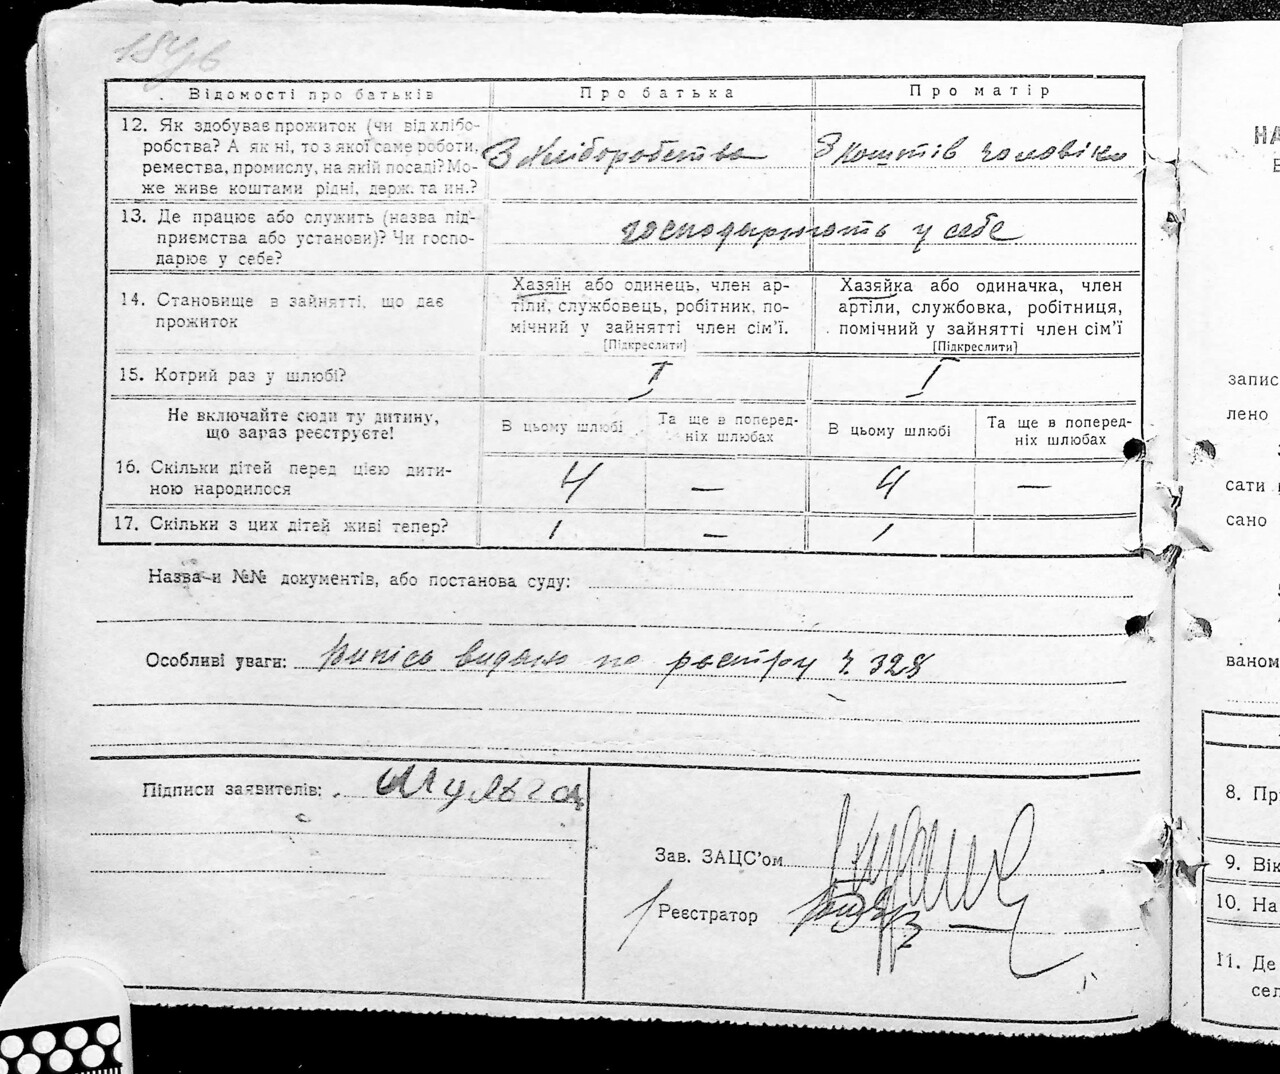 Відомості про батьків Про батька Про матір
12. Як здобуває прожиток (чи від хлібо-
робства? А як ні, то з якої саме роботи,
ремества, промислу, на якій посаді? Мо-
же живе коштами рідні, держ. та ин.?
З хліборобства З коштів чоловіка
13. Де працює або служить (назва під-
приємства або установи)? Чи госпо-
дарює у себе?
господарюють у себе
14. Становище в зайнятті, що дає
прожиток
Хазяїн або одинець, член ар-
тіли, службовець, робітник, по-
мічний у зайнятті член сім'ї.
[Підкреслити]
Хазяйка або одиначка, член
артіли, службовка, робітниця,
помічний у зайнятті член сім'ї
[Підкреслити]
15. Котрий раз у шлюбі? I I
Не включайте сюди ту дитину,
що зараз реєструєте!
В цьому шлюбі
Та ще в поперед-
ніх шлюбах
В цьому шлюбі
Та ще в поперед-
ніх шлюбах
16. Скільки дітей перед цією дити-
ною народилося
4 — 4 —
17. Скільки з цих дітей живі тепер? 1 — 1
Назва и №№ документів, або постанова суду:
Особливі уваги: видано по реєстру ч. 328
Підписи заявителів:
Зав. ЗАЦС'ом
Реєстратор
НА
запис
лено
сати
сано
ваном
8. Пр
9. Вік
10. На
11. Де
сел